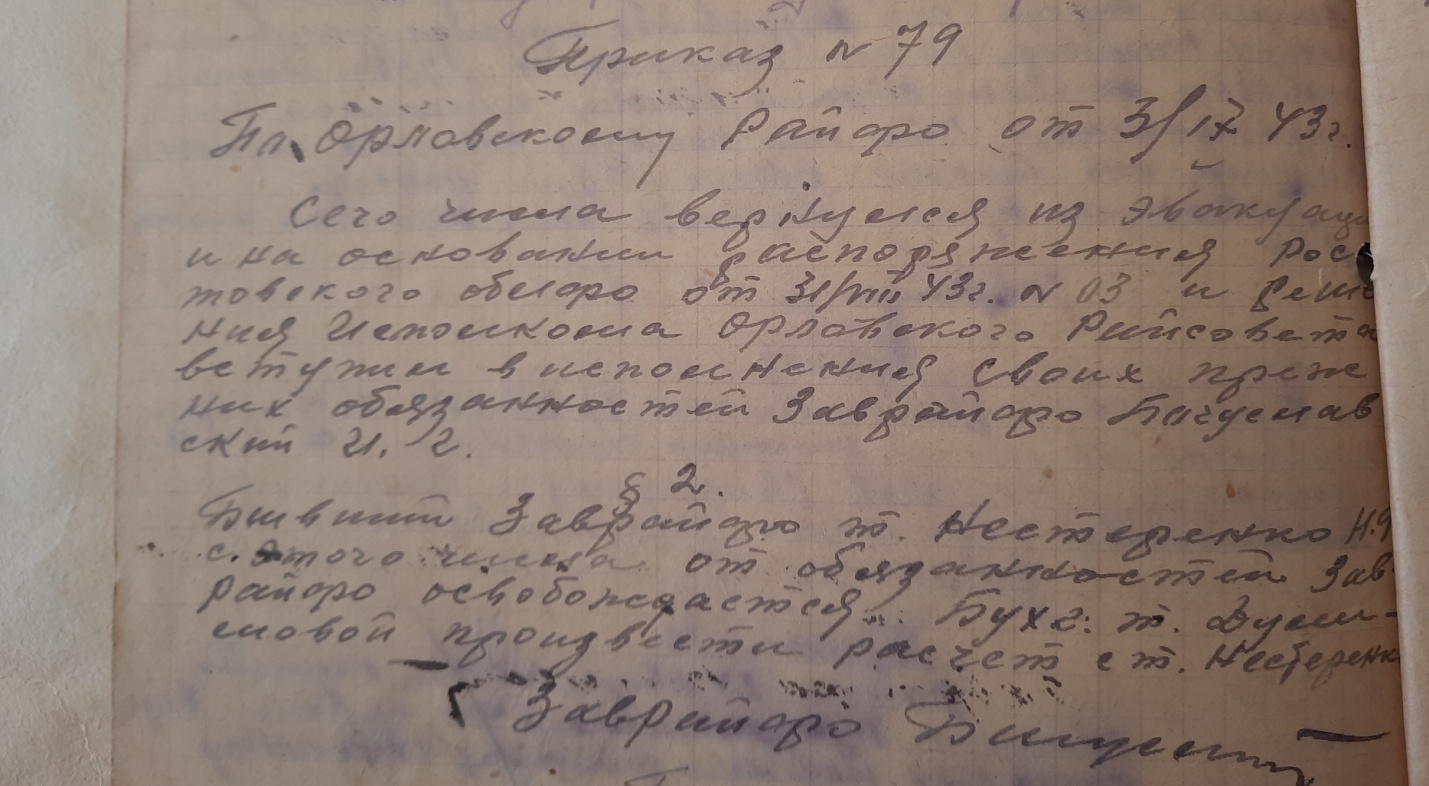 Приказ N 79
По Орловскому Райфо от 3/IX 43г.
Сего числа вернулся из эвакуаци
и на основании распоряжения Рос
товского облфо от 31/VIII 43г. N 03 и реше
ния Исполкома Орловского Райсовета
вступил в исполнения своих преж
них обязанностей Заврайфо Багуслав
ский И. Г.
§ 2.
Бывший Заврайфо т. Нестеренко Н.Я
с этого числа от обязанностей Зав-
райфо освобождается. Бухг. т.
произвести расчет с т. Нестеренк
Заврайфо